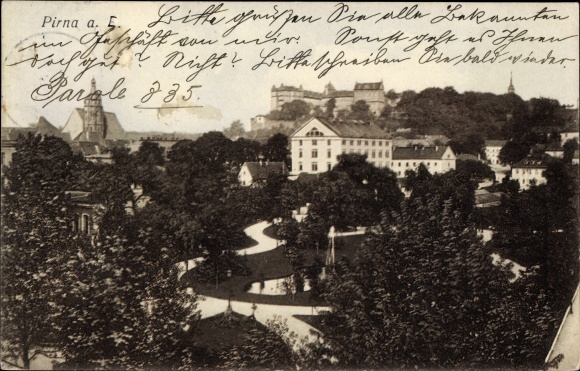 Pirna a. E.
Bitte grüßen Sie alle Bekannten
im Geschäft von mir. Sonst geht es Ihnen
doch gut? Nicht? Bitte schreiben Sie bald wieder.
Parole 835.